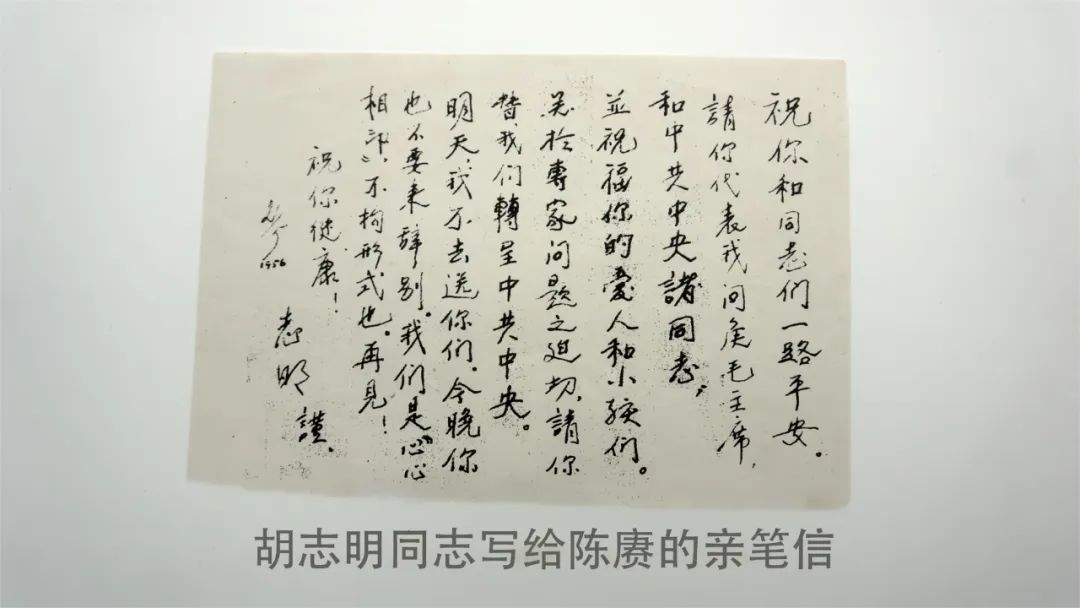 祝你和同志们一路平安。
請你代表我问候毛主席,
和中共中央諸同志,
並祝福你的爱人和小孩们。
关於專家问题之迫切,請你
替我们轉呈中共中央。
明天,我不去送你们,今晚你
也不要来辞别。我们是“心心
相印”,不拘形式也。再见!
祝你健康!
志明
1956
胡志明同志写给陈赓的亲笔信